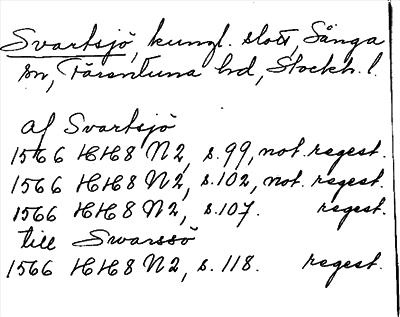 Svartsjö, kungl. slott, Sånga
sn, Färentuna hd, Stockh. l.
af Svartsjö
1566 HH8 N2, s. 99, not. regest.
1566 HH8 N2, s. 102, not. regest.
1566 HH8 N2, s. 107. regest.
till Swarssö
1566 HH8 N2, s. 118. regest.